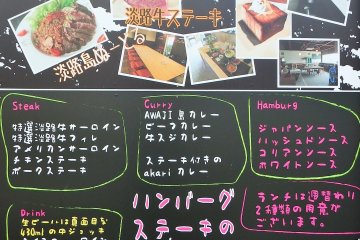 淡路牛ステーキ
淡路島ぬーどる
Steak
特選淡路牛サーロイン
特選淡路牛フィレ
アメリカンサーロイン
チキンステーキ
ポークステーキ
Curry
AWAJI島カレー
ビーフカレー
牛スジカレー
ステーキ付きの
akari カレー
Hamburg
ジャパンソース
ハッシュドソース
コリアンソース
ホワイトソース
Drink
生ビールは真面目な
430mlの中ジョッキ
ハンバーグ
ステーキの
ランチは週替わり
2種類の用意が
ございます。